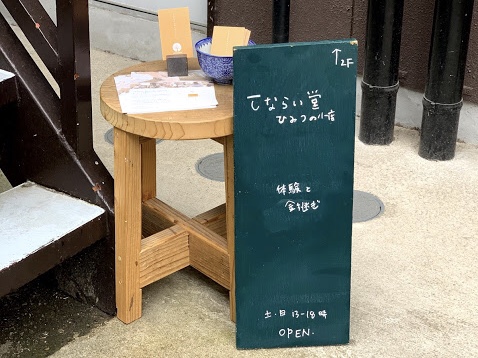 ↑2F
てならい堂
ひみつの小店
体験と
金継ぎ
土・日 13-18時
OPEN.